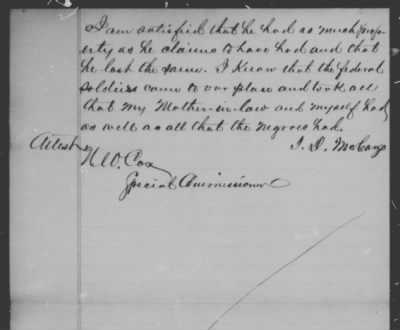 I am satisfied that he had as much prop-
erty as he claims to have had and that
he lost the same. I know that the federal
soldiers came to our place and took all
that my Mother-in-law and myself had
as well as all that the negroes had.
I. D.
Attest
N. W. Cox
Special Commissioner